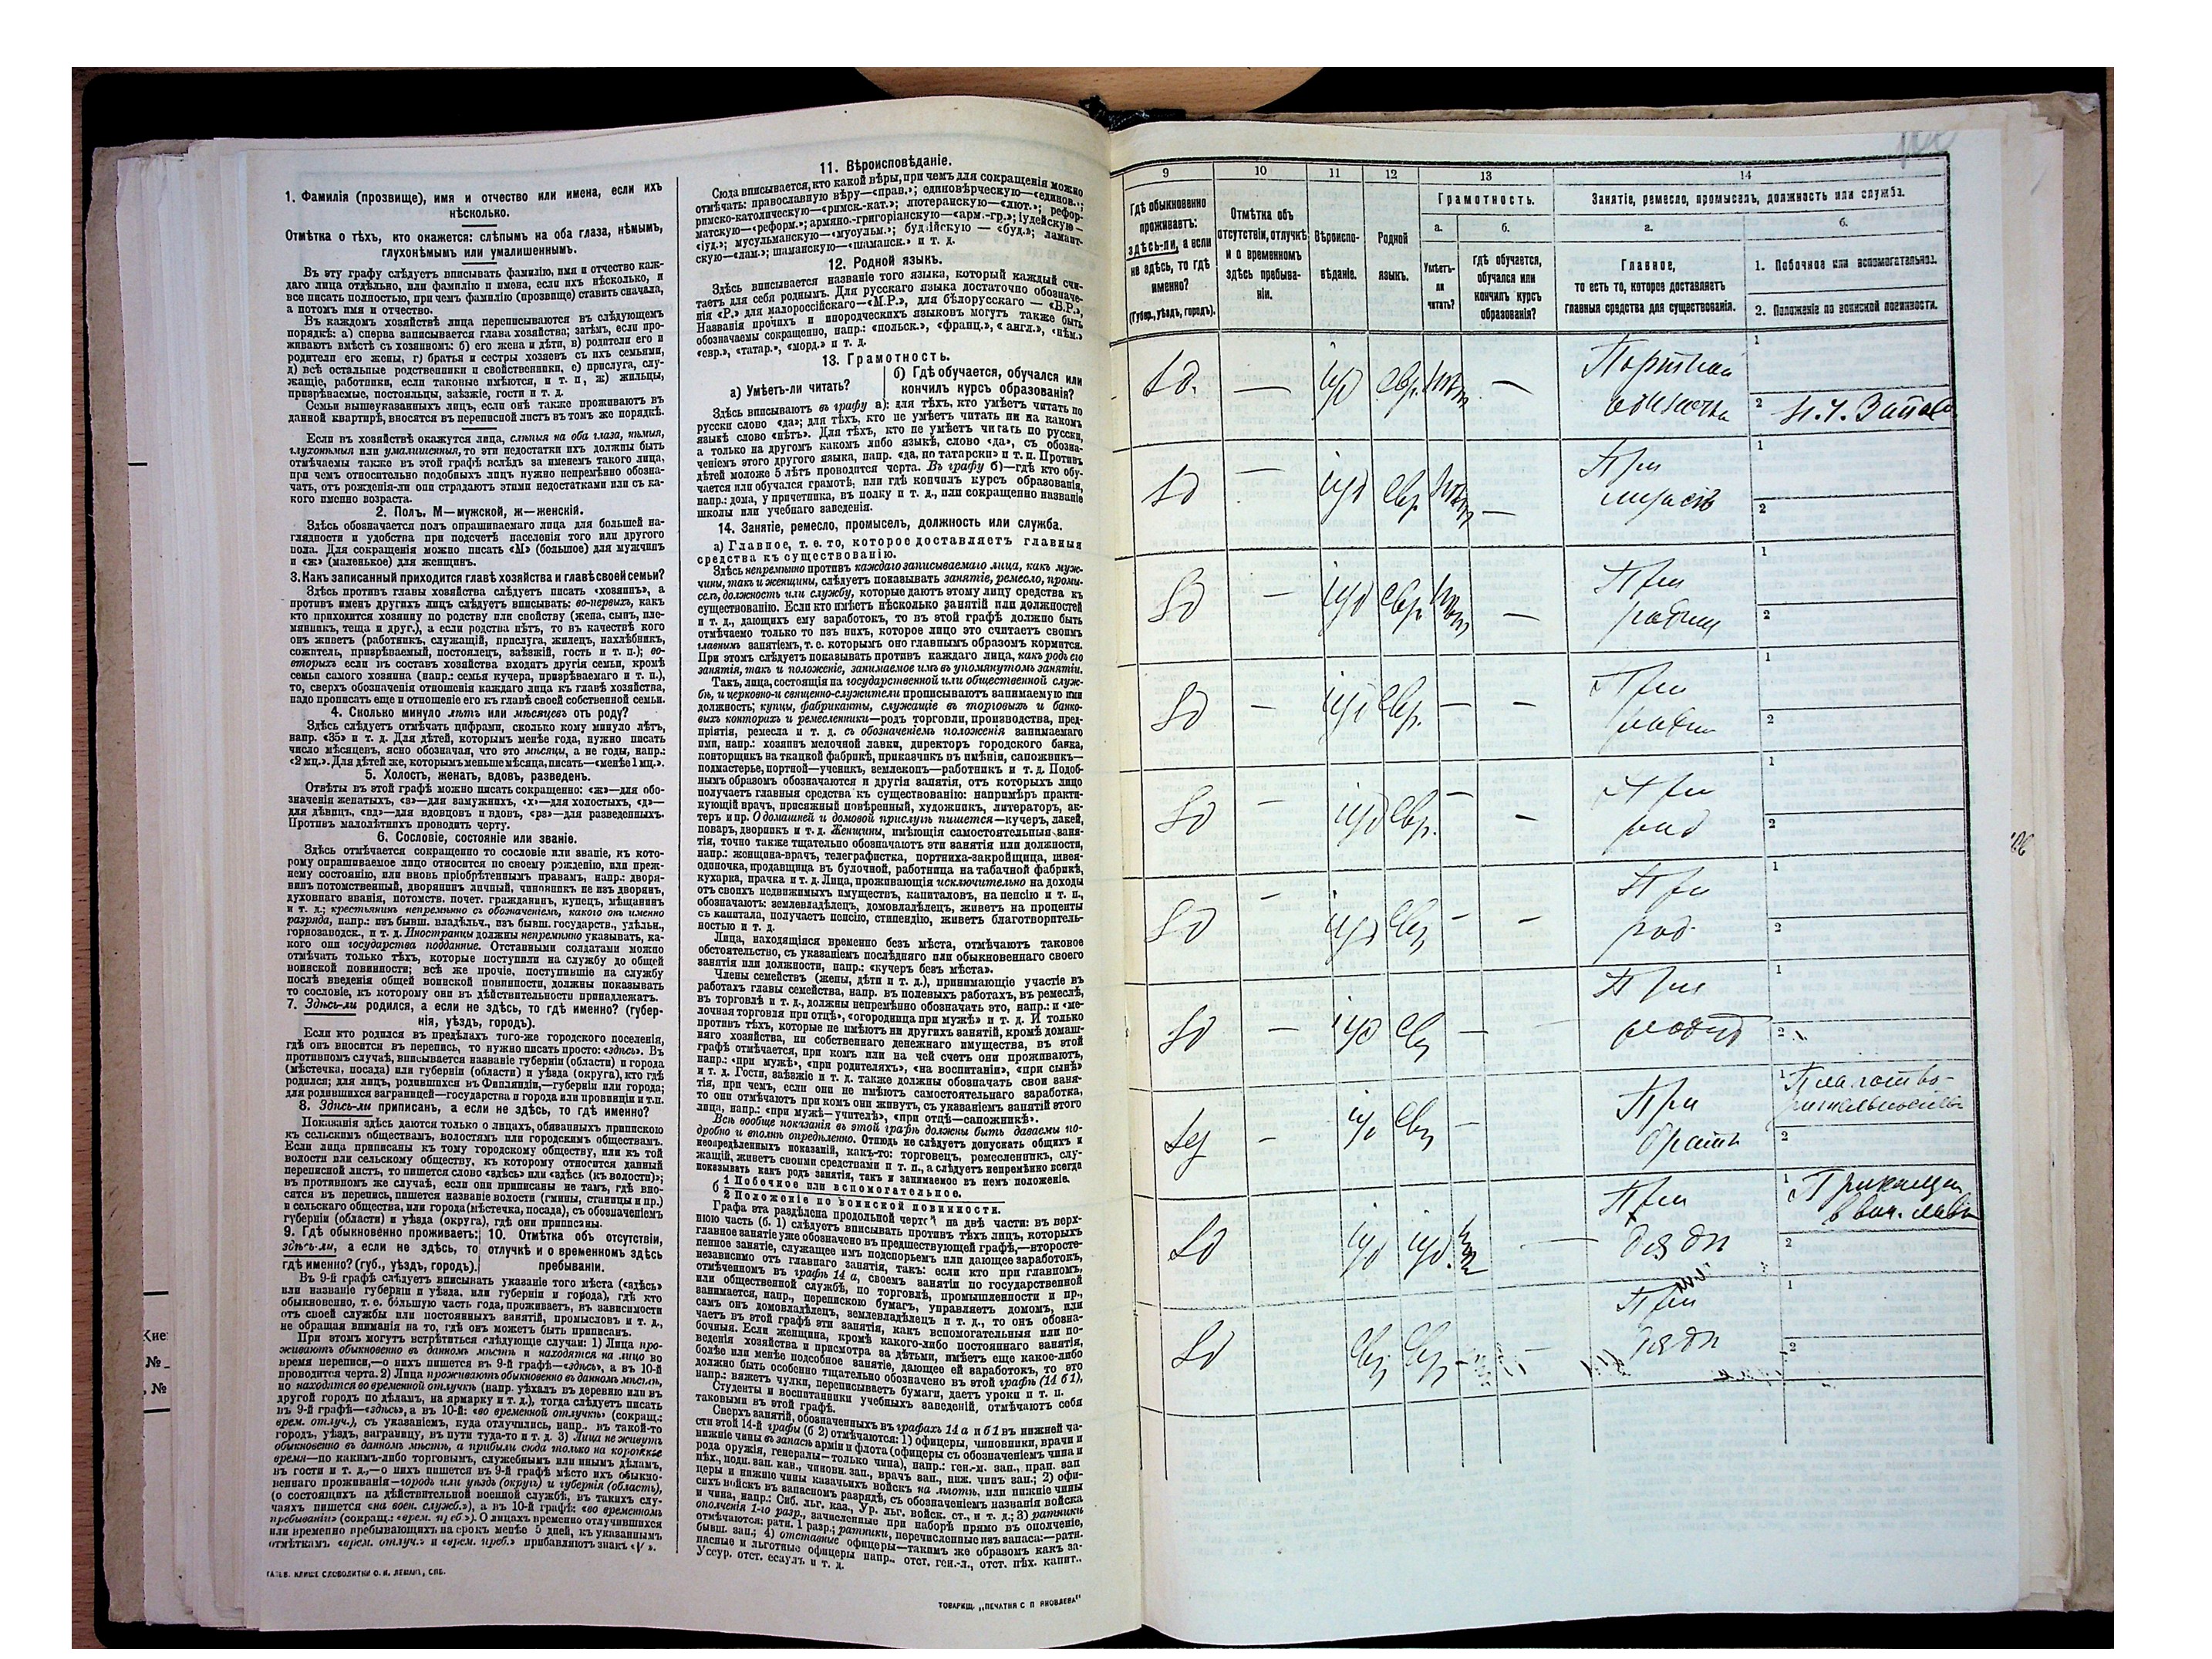 1. Фамилія (прозвище), имя и отчество или имена, если ихъ
нѣсколько.
Отмѣтка о тѣхъ, кто окажется: слѣпымъ на оба глаза, нѣмымъ,
глухонѣмымъ или умалишеннымъ.
Въ эту графу слѣдуетъ вписывать фамилію, имя и отчество каж-
даго лица отдѣльно, или фамилію и имена, если ихъ нѣсколько, и
все писать полностью, при чемъ фамилію (прозвище) ставить сначала,
а потомъ имя и отчество.
Въ каждомъ хозяйствѣ лица переписываются въ слѣдующемъ
порядкѣ: а) сперва записывается глава хозяйства; затѣмъ, если про-
живаютъ вмѣстѣ съ хозяиномъ: б) его жена и дѣти, в) родители его и
родители его жены, г) братья и сестры хозяевъ съ ихъ семьями,
д) всѣ остальные родственники и свойственники, е) прислуга, слу-
жащіе, работники, если таковые имѣются, и т. п, ж) жильцы,
призрѣваемые, постояльцы, заѣзжіе, гости и т. д.
Семьи вышеуказанныхъ лицъ, если онѣ также проживаютъ въ
данной квартирѣ, вносятся въ переписной листъ въ томъ же порядкѣ.
Если въ хозяйствѣ окажутся лица, слѣпыя на оба глаза, нѣмыя,
глухонѣмыя или умалишенныя, то эти недостатки ихъ должны быть
отмѣчаемы также въ этой графѣ вслѣдъ за именемъ такого лица,
при чемъ относительно подобныхъ лицъ нужно непремѣнно обозна-
чать, отъ рожденія-ли они страдаютъ этими недостатками или съ ка-
кого именно возраста.
2. Полъ. М—мужской, ж—женскій.
Здѣсь обозначается полъ опрашиваемаго лица для большей на-
глядности и удобства при подсчетѣ населенія того или другого
пола. Для сокращенія можно писать «М» (большое) для мужчинъ
и «ж» (маленькое) для женщинъ.
3. Какъ записанный приходится главѣ хозяйства и главѣ своей семьи?
Здѣсь противъ главы хозяйства слѣдуетъ писать «хозяинъ», а
противъ именъ другихъ лицъ слѣдуетъ вписывать: во-первыхъ, какъ
кто приходится хозяину по родству или свойству (жена, сынъ, пле-
мянникъ, теща и друг.), а если родства нѣтъ, то въ качествѣ кого
онъ живетъ (работникъ, служащій, прислуга, жилецъ, нахлѣбникъ,
сожитель, призрѣваемый, постоялецъ, заѣзжій, гость и т. п.); во-
вторыхъ если въ составъ хозяйства входятъ другія семьи, кромѣ
семьи самого хозяина (напр.: семья кучера, призрѣваемаго и т. п.),
то, сверхъ обозначенія отношенія каждаго лица къ главѣ хозяйства,
надо прописать еще и отношеніе его къ главѣ своей собственной семьи.
4. Сколько минуло лѣтъ или мѣсяцевъ отъ роду?
Здѣсь слѣдуетъ отмѣчать цифрами, сколько кому минуло лѣтъ,
напр. «35» и т. д. Для дѣтей, которымъ менѣе года, нужно писать
число мѣсяцевъ, ясно обозначая, что это мѣсяцы, а не годы, напр.:
«2 мц.». Для дѣтей же, которымъ меньше мѣсяца, писать—«менѣе 1 мц.».
5. Холостъ, женатъ, вдовъ, разведенъ.
Отвѣты въ этой графѣ можно писать сокращенно: «ж»—для обо-
значенія женатыхъ, «з»—для замужнихъ, «х»—для холостыхъ, «д»—
для дѣвицъ, «вд»—для вдовцовъ и вдовъ, «рз»—для разведенныхъ.
Противъ малолѣтнихъ проводить черту.
6. Сословіе, состояніе или званіе.
Здѣсь отмѣчается сокращенно то сословіе или званіе, къ кото-
рому опрашиваемое лицо относится по своему рожденію, или преж-
нему состоянію, или вновь пріобрѣтеннымъ правамъ, напр.: дворя-
нинъ потомственный, дворянинъ личный, чиновникъ не изъ дворянъ,
духовнаго званія, потомств. почет. гражданинъ, купецъ, мѣщанинъ
и т. д.; крестьянинъ непремѣнно съ обозначеніемъ, какого онъ именно
разряда, напр.: изъ бывш. владѣльч., изъ бывш. государств., удѣльн.,
горнозаводск., и т. д. Иностранцы должны непремѣнно указывать, ка-
кого они государства подданные. Отставными солдатами можно
отмѣчать только тѣхъ, которые поступили на службу до общей
воинской повинности; всѣ же прочіе, поступившіе на службу
послѣ введенія общей воинской повинности, должны показывать
то сословіе, къ которому они въ дѣйствительности принадлежатъ.
7. Здѣсь-ли родился, а если не здѣсь, то гдѣ именно? (губер-
нія, уѣздъ, городъ).
Если кто родился въ предѣлахъ того-же городского поселенія,
гдѣ онъ вносится въ перепись, то нужно писать просто: «здѣсь». Въ
противномъ случаѣ, вписывается названіе губерніи (области) и города
(мѣстечка, посада) или губерніи (области) и уѣзда (округа), кто гдѣ
родился; для лицъ, родившихся въ Финляндіи,—губерніи или города;
для родившихся заграницей—государства и города или провинціи и т.п.
8. Здѣсь-ли приписанъ, а если не здѣсь, то гдѣ именно?
Показанія здѣсь даются только о лицахъ, обязанныхъ припискою
къ сельскимъ обществамъ, волостямъ или городскимъ обществамъ.
Если лица приписаны къ тому городскому обществу, или къ той
волости или сельскому обществу, къ которому относится данный
переписной листъ, то пишется слово «здѣсь» или «здѣсь (къ волости)»;
въ противномъ же случаѣ, если они приписаны не тамъ, гдѣ вно-
сятся въ перепись, пишется названіе волости (гмины, станицы и пр.)
и сельскаго общества, или города (мѣстечка, посада), съ обозначеніемъ
губерніи (области) и уѣзда (округа), гдѣ они приписаны.
9. Гдѣ обыкновенно проживаетъ:
здѣсь-ли, а если не здѣсь, то
гдѣ именно? (губ., уѣздъ, городъ).
10. Отмѣтка объ отсутствіи,
отлучкѣ и о временномъ здѣсь
пребываніи.
Въ 9-й графѣ слѣдуетъ вписывать указаніе того мѣста («здѣсь»
или названіе губерніи и уѣзда, или губерніи и города), гдѣ кто
обыкновенно, т. е. бо́льшую часть года, проживаетъ, въ зависимости
отъ своей службы или постоянныхъ занятій, промысловъ и т. д.,
не обращая вниманія на то, гдѣ онъ можетъ быть приписанъ.
При этомъ могутъ встрѣтиться слѣдующіе случаи: 1) Лица про-
живаютъ обыкновенно въ данномъ мѣстѣ и находятся на лицо во
время переписи,—о нихъ пишется въ 9-й графѣ—«здѣсь», а въ 10-й
проводится черта. 2) Лица проживаютъ обыкновенно въ данномъ мѣстѣ,
но находятся во временной отлучкѣ (напр. уѣхалъ въ деревню или въ
другой городъ по дѣламъ, на ярмарку и т. д.), тогда слѣдуетъ писать
въ 9-й графѣ—«здѣсь», а въ 10-й: «во временной отлучкѣ» (сокращ.:
врем. отлуч.), съ указаніемъ, куда отлучились, напр., въ такой-то
городъ, уѣздъ, заграницу, въ пути туда-то и т. д. 3) Лица не живутъ
обыкновенно въ данномъ мѣстѣ, а прибыли сюда только на короткое
время—по какимъ-либо торговымъ, служебнымъ или инымъ дѣламъ,
въ гости и т. д.,—о нихъ пишется въ 9-й графѣ мѣсто ихъ обыкно-
веннаго проживанія—городъ или уѣздъ (округъ) и губернія (область),
(о состоящихъ на дѣйствительной военной службѣ, въ такихъ слу-
чаяхъ пишется «на воен. служб.»), а въ 10-й графѣ: «во временномъ
пребываніи» (сокращ.: «врем. преб.»). О лицахъ временно отлучившихся
или временно пребывающихъ на срокъ менѣе 5 дней, къ указаннымъ
отмѣткамъ «врем. отлуч.» и «врем. преб.» прибавляютъ знакъ «|/ ».
11. Вѣроисповѣданіе.
Сюда вписывается, кто какой вѣры, при чемъ для сокращенія можно
отмѣчать: православную вѣру—«прав.»; единовѣрческую—«единов.»;
римско-католическую—«римск.-кат.»; лютеранскую—«лют.»; рефор-
матскую—«реформ.»; армяно-григоріанскую—«арм.-гр.»; іудейскую—
«іуд.»; мусульманскую—«мусульм.»; буддійскую — «буд.»; ламаит-
скую—«лам.»; шаманскую—«шаманск.» и т. д.
12. Родной языкъ.
Здѣсь вписывается названіе того языка, который каждый счи-
таетъ для себя роднымъ. Для русскаго языка достаточно обозначе-
нія «Р.» для малороссійскаго—«М.Р.», для бѣлорусскаго — «Б.Р.»,
Названія прочихъ и инородческихъ языковъ могутъ также быть
обозначаемы сокращенно, напр.: «польск.», «франц.», « англ.», «нѣм.»
«евр.», «татар.», «морд.» и т. д.
13. Грамотность.
а) Умѣетъ-ли читать?
б) Гдѣ обучается, обучался или
кончилъ курсъ образованія?
Здѣсь вписываютъ въ графу а): для тѣхъ, кто умѣетъ читать по
русски слово «да»; для тѣхъ, кто не умѣетъ читать ни на какомъ
языкѣ слово «нѣтъ». Для тѣхъ, кто не умѣетъ читать по русски,
а только на другомъ какомъ либо языкѣ, слово «да», съ обозна-
ченіемъ этого другого языка, напр. «да, по татарски» и т. п. Противъ
дѣтей моложе 5 лѣтъ проводится черта. Въ графу б)—гдѣ кто обу-
чается или обучался грамотѣ, или гдѣ кончилъ курсъ образованія,
напр.: дома, у причетника, въ полку и т. д., или сокращенно названіе
школы или учебнаго заведенія.
14. Занятіе, ремесло, промыселъ, должность или служба.
а) Главное, т. е. то, которое доставляетъ главныя
средства къ существованію.
Здѣсь непремѣнно противъ каждаго записываемаго лица, какъ муж-
чины, такъ и женщины, слѣдуетъ показывать занятіе, ремесло, промы-
селъ, должность или службу, которые даютъ этому лицу средства къ
существованію. Если кто имѣетъ нѣсколько занятій или должностей
и т. д., дающихъ ему заработокъ, то въ этой графѣ должно быть
отмѣчаемо только то изъ нихъ, которое лицо это считаетъ своимъ
главнымъ занятіемъ, т. е. которымъ оно главнымъ образомъ кормится.
При этомъ слѣдуетъ показывать противъ каждаго лица, какъ родъ его
занятія, такъ и положеніе, занимаемое имъ въ упомянутомъ занятіи.
Такъ, лица, состоящія на государственной или общественной служ-
бѣ, и церковно-и священно-служители прописываютъ занимаемую ими
должность; купцы, фабриканты, служащіе въ торговыхъ и банко-
выхъ конторахъ и ремесленники—родъ торговли, производства, пред-
пріятія, ремесла и т. д. съ обозначеніемъ положенія занимаемаго
ими, напр.: хозяинъ мелочной лавки, директоръ городского банка,
конторщикъ на ткацкой фабрикѣ, приказчикъ въ имѣніи, сапожникъ—
подмастерье, портной—ученикъ, землекопъ—работникъ и т. д. Подоб-
нымъ образомъ обозначаются и другія занятія, отъ которыхъ лицо
получаетъ главныя средства къ существованію: напримѣръ практи-
кующій врачъ, присяжный повѣренный, художникъ, литераторъ, ак-
теръ и пр. О домашней и домовой прислугѣ пишется—кучеръ, лакей,
поваръ, дворникъ и т. д. Женщины, имѣющія самостоятельныя заня-
тія, точно также тщательно обозначаютъ эти занятія или должности,
напр.: женщина-врачъ, телеграфистка, портниха-закройщица, швея-
одиночка, продавщица въ булочной, работница на табачной фабрикѣ,
кухарка, прачка и т. д. Лица, проживающія исключительно на доходы
отъ своихъ недвижимыхъ имуществъ, капиталовъ, на пенсію и т. п.,
обозначаютъ: землевладѣлецъ, домовладѣлецъ, живетъ на проценты
съ капитала, получаетъ пенсію, стипендію, живетъ благотворитель-
ностью и т. д.
Лица, находящіяся временно безъ мѣста, отмѣчаютъ таковое
обстоятельство, съ указаніемъ послѣдняго или обыкновеннаго своего
занятія или должности, напр.: «кучеръ безъ мѣста».
Члены семействъ (жены, дѣти и т. д.), принимающіе участіе въ
работахъ главы семейства, напр. въ полевыхъ работахъ, въ ремеслѣ,
въ торговлѣ и т. д., должны непремѣнно обозначать это, напр.: п «ме-
лочная торговля при отцѣ», «огородница при мужѣ» и т. д. И только
противъ тѣхъ, которые не имѣютъ ни другихъ занятій, кромѣ домаш-
няго хозяйства, ни собственнаго денежнаго имущества, въ этой
графѣ отмѣчается, при комъ или на чей счетъ они проживаютъ,
напр.: «при мужѣ», «при родителяхъ», «на воспитаніи», «при сынѣ»
и т. д. Гости, заѣзжіе и т. д. также должны обозначать свои заня-
тія, при чемъ, если они не имѣютъ самостоятельнаго заработка,
то они отмѣчаютъ при комъ они живутъ, съ указаніемъ занятій этого
лица, напр.: «при мужѣ—учителѣ», «при отцѣ—сапожникѣ».
Всѣ вообще показанія въ этой графѣ должны быть даваемы по-
дробно и вполнѣ опредѣленно. Отнюдь не слѣдуетъ допускать общихъ и
неопредѣленныхъ показаній, какъ-то: торговецъ, ремесленникъ, слу-
жащій, живетъ своими средствами и т. п., а слѣдуетъ непремѣнно всегда
показывать какъ родъ занятія, такъ и занимаемое въ немъ положеніе.
б
1 Побочное или вспомогательное.
2 Положеніе по воинской повинности.
Графа эта раздѣлена продольной чертой на двѣ части: въ верх-
нюю часть (б. 1) слѣдуетъ вписывать противъ тѣхъ лицъ, которыхъ
главное занятіе уже обозначено въ предшествующей графѣ,—второсте-
пенное занятіе, служащее имъ подспорьемъ или дающее заработокъ,
независимо отъ главнаго занятія, такъ: если кто при главномъ,
отмѣченномъ въ графѣ 14 а, своемъ занятіи по государственной
или общественной службѣ, по торговлѣ, промышленности и пр.,
занимается, напр., перепискою бумагъ, управляетъ домомъ, или
самъ онъ домовладѣлецъ, землевладѣлецъ и т. д., то онъ обозна-
чаетъ въ этой графѣ эти занятія, какъ вспомогательныя или по-
бочныя. Если женщина, кромѣ какого-либо постояннаго занятія,
веденія хозяйства и присмотра за дѣтьми, имѣетъ еще какое-либо
болѣе или менѣе подсобное занятіе, дающее ей заработокъ, то это
должно быть особенно тщательно обозначено въ этой графѣ (14 б 1),
напр.: вяжетъ чулки, переписываетъ бумаги, даетъ уроки и т. п.
Студенты и воспитанники учебныхъ заведеній, отмѣчаютъ себя
таковыми въ этой графѣ.
Сверхъ занятій, обозначенныхъ въ графахъ 14 а и б 1 въ нижней ча-
сти этой 14-й графы (б 2) отмѣчаются: 1) офицеры, чиновники, врачи и
нижніе чины въ запасѣ арміи и флота (офицеры съ обозначеніемъ чина и
рода оружія, генералы—только чина), напр.: ген.-м. зап., прап. зап
пѣх., подп. зап. кав., чиновн. зап., врачъ зап., ниж. чинъ зап.; 2) офи-
церы и нижніе чины казачьихъ войскъ на льготѣ, или нижніе чины
сихъ войскъ въ запасномъ разрядѣ, съ обозначеніемъ названія войска
и чина, напр.: Сиб. льг. каз., Ур. льг. войск. ст., и т. д.; 3) ратники
ополченія 1-го разр., зачисленные при наборѣ прямо въ ополченіе,
отмѣчаются: ратн. 1 разр.; ратники, перечисленные изъ запаса:—ратн.
бывш. зап.; 4) отставные офицеры—такимъ же образомъ какъ за-
пасные и льготные офицеры напр., отст. ген.-л., отст. пѣх. капит.,
Уссур. отст. есаулъ и т. д.
ТОВАРИЩ. „ПЕЧАТНЯ С П ЯКОВЛЕВА"
9 10 11 12 13 14
Гдѣ обыкновенно
проживаетъ:
здѣсь-ли, а если
не здѣсь, то гдѣ
именно?
(Губер., уѣздъ, городъ).
Отмѣтка объ
отсутствіи, отлучкѣ
и о временномъ
здѣсь пребыва-
ніи.
Вѣроиспо-
вѣданіе.
Родной
языкъ.
Грамотность.
а.
Умѣетъ-
ли
читать?
б.
гдѣ обучается,
обучался или
кончилъ курсъ
образованія?
Занятіе, ремесло, промыселъ, должность или служба.
а.
Главное,
то есть то, которое доставляетъ
главныя средства для существованія.
б.
1. Побочное или вспомогательное.
2. Положеніе по воинской повинности.
Зд. — іуд евр. нѣтъ —
1
2
Зд — іуд евр нѣтъ —
При
1
2
Зд — іуд евр нѣтъ —
При
1
2
Зд — іуд евр. — —
При
1
2
Зд — іуд евр. — —
При
род
1
2
Зд — іуд евр — —
При
род
1
2
Зд — іуд евр —
При
1
2
Зд — іуд евр —
При
братѣ
1
2
Зд іуд іуд. —
При
дядѣ
1 Приказщи
в вин. лавк
2
Зд евр евр —
При
дядѣ
1
2